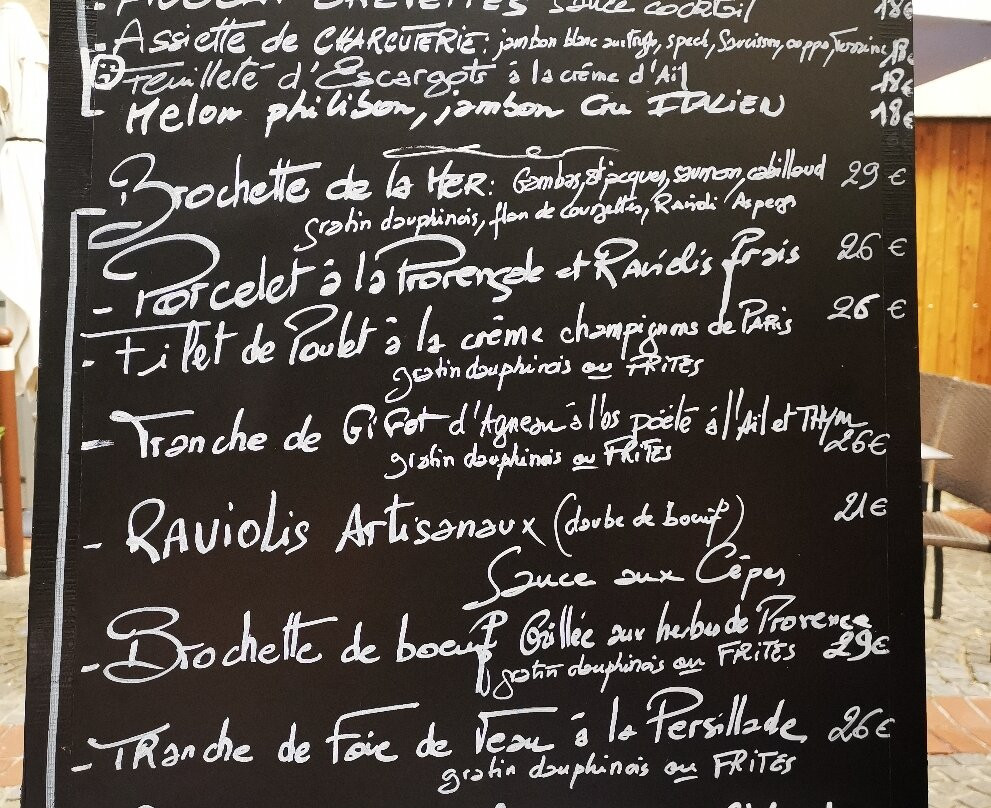 CREVETTES sauce cocktail 18€
- Assiette de CHARCUTERIE: jambon blanc aux truffe, speck, Saucisson, coppa, Terrine 18€
Feuilleté d'Escargots à la crème d'Ail 18€
- Melon philibon, jambon Cru ITALIEN 18€
Brochette de la MER: Gambas, St jacques, saumon, cabillaud 29€
gratin dauphinois, flan de courgettes, Ravioli Asperge
- Porcelet à la Provençale et Raviolis frais 26€
- Filet de Poulet à la crème champignons de PARIS 26€
gratin dauphinois ou FRITES
- Tranche de GiGot d'Agneau à l'os poëlé à l'Ail et THYM
26€
gratin dauphinois ou FRITES
- RAViolis Artisanaux (daube de boeuf) 21€
Sauce aux Cèpes
- Brochette de boeuf Grillée aux herbes de Provence
29€
gratin dauphinois ou FRITES
- TRanche de Foie de Veau à la Persillade 26€
gratin dauphinois ou FRITES